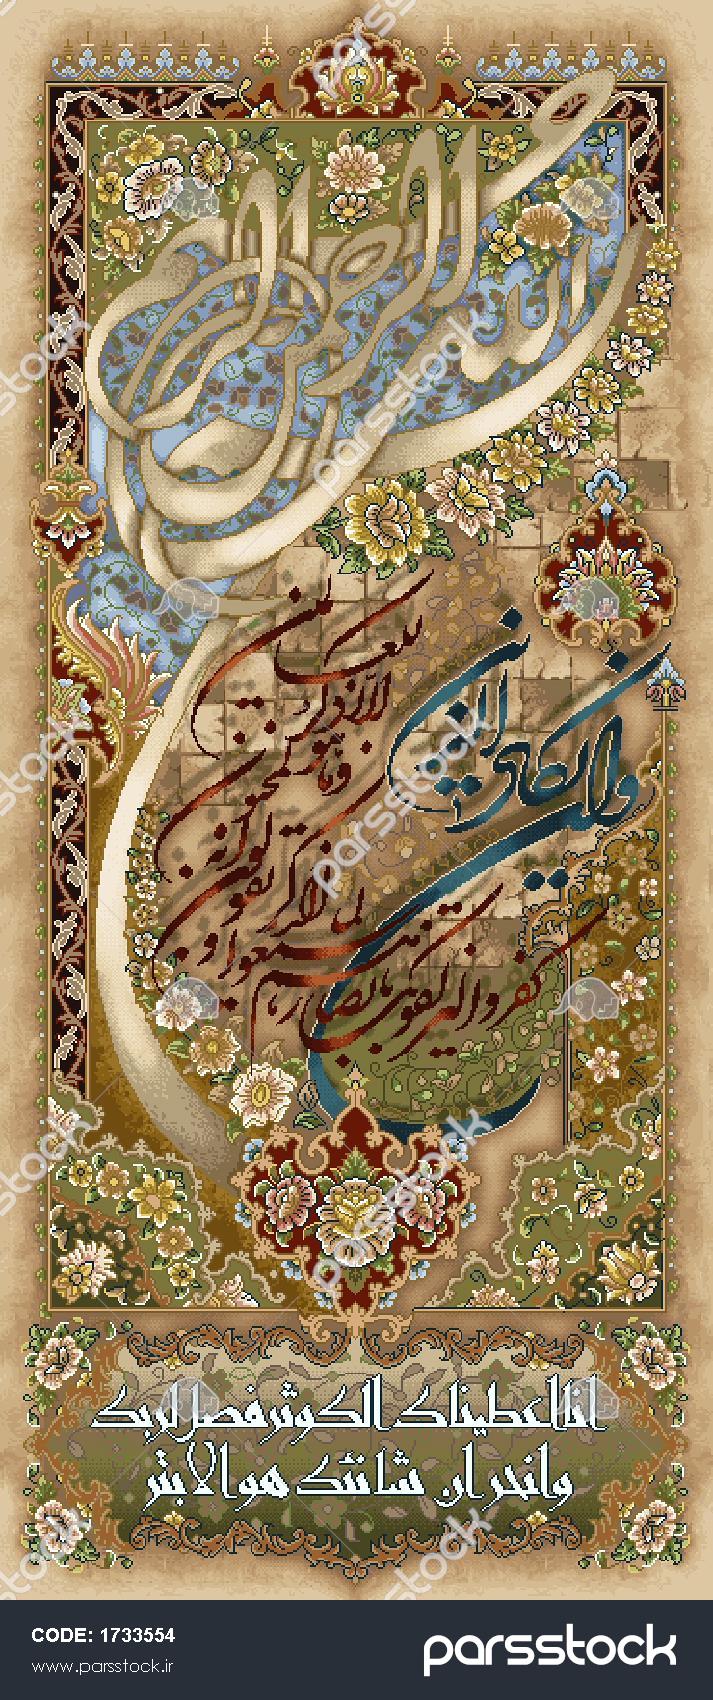 بسم الله الرحمن الرحیم
وان یکاد الذین
کفروا لیزلقونک بابصارهم
لما سمعوا الذکر و
یقولون انه لمجنون
وما هو الا ذکر
للعالمین
انا اعطیناک الکوثر فصل لربک
وانحر ان شانئک هو الابتر
parsstock
CODE: 1733554
www.parsstock.ir
parsstock